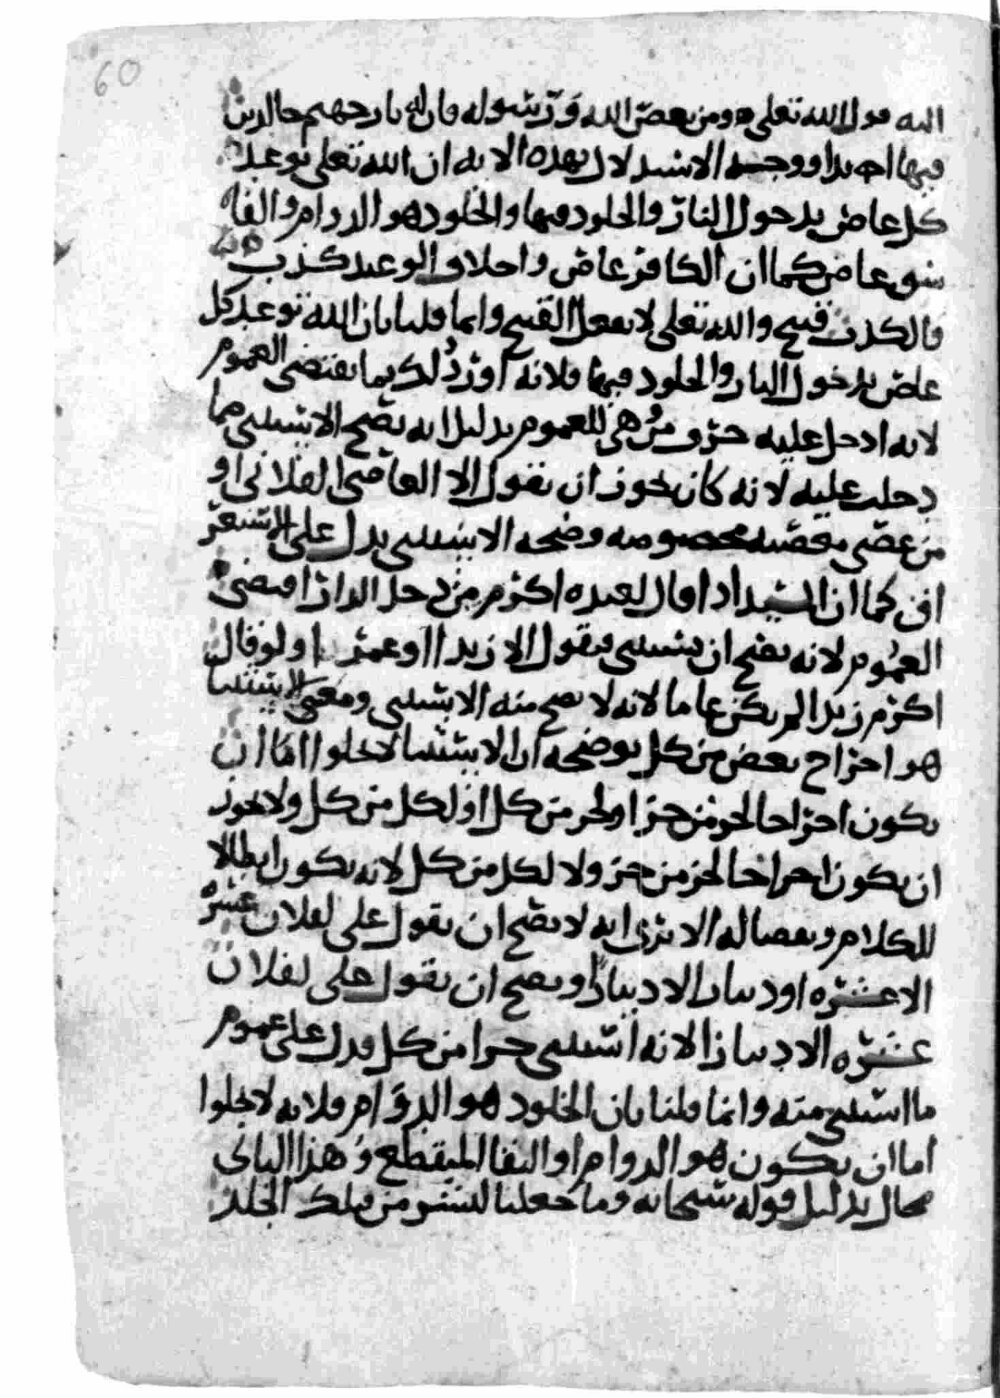 60
الله قول الله تعلى ومن يعص الله ورسوله فان له نار جهنم خالدين
فيها ابدا ووجه الاستدلال بهذه الايه ان الله تعلى توعد
كل عاص بدخول النار والخلود فيها والخلود هو الدوام والفا
سق عاص كما ان الكافر عاص واخلاف الوعيد كذب
والكذب قبيح والله تعلى لا يفعل القبيح وانما قلنا بان الله توعد كل
عاص بدخول النار والخلود فيها فلانه اورد ذلك بما يقتضى العموم
لانه ادخل عليه حرف من وهى للعموم بدليل انه يصح الاستثنى مما
دخلت عليه لانه كان يجوز ان يقول الا العاصى الفلانى او
من عصى معصيه مخصوصه وصحه الاستثنى يدل على الاستغر
اق كما ان السيد اذا قال لعبده اكرم من دخل الدار اقتضى
العموم لانه يصح ان يستثنى فيقول الا زيدا او عمرا ولو قال
اكرم زيدا لم يكن عاما لانه لا يصح منه الاستثنى ومعنى الاستثنا
هو اخراج بعض من كل يوضحه ان الاستثنا لا يخلوا اما ان
يكون اخراجا لجزء من جزء او لجزء من كل او لكل من كل ولا يجوز
ان يكون اخراجا لجزء من جزء ولا لكل من كل لانه يكون ابطالا
للكلام ونقضا له الا ترى انه لا يصح ان يقول على لفلان عشره
الا عشره او دينارا الا دينارا ويصح ان يقول على لفلان
عشره الا دينارا لانه استثنى جزءا من كل فدل على عموم
ما استثنى منه وانما قلنا بان الخلود هو الدوام فلانه لا يخلوا
اما ان يكون هو الدوام او البقا المنقطع وهذا الثانى
محال بدليل قوله سبحانه وما جعلنا لبشر من قبلك الخلد